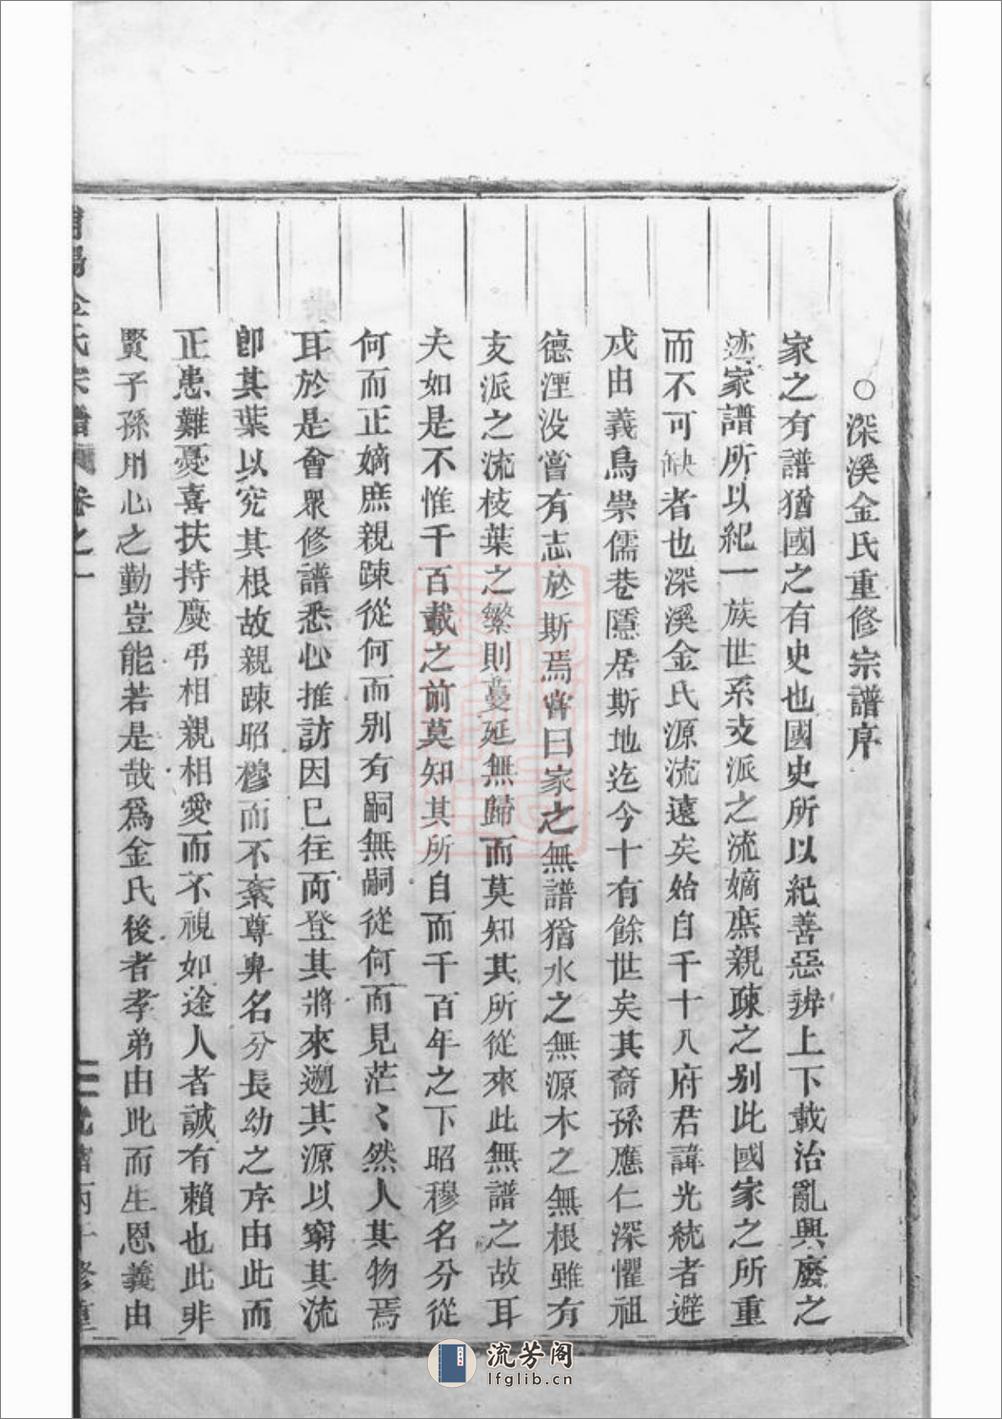 ○深溪金氏重修宗譜序
家之有譜猶國之有史也國史所以紀善惡辨上下載治亂興廢之
迹家譜所以紀一族世系支派之流嫡庶親疎之别此國家之所重
而不可缺者也深溪金氏源流遠矣始自千十八府君諱光統者避
戍由義烏崇儒巷隱居斯地迄今十有餘世矣其裔孫應仁深懼祖
德湮没嘗有志於斯焉嘗曰家之無譜猶水之無源木之無根雖有
支派之流枝葉之繁則蔓延無歸而莫知其所從來此無譜之故耳
夫如是不惟千百載之前莫知其所自而千百年之下昭穆名分從
何而正嫡庶親踈從何而别有嗣無嗣從何而見茫〻然人其物焉
耳於是會衆修譜悉心推訪因已往而登其將來遡其源以窮其流
卽其葉以究其根故親踈昭穆而不紊尊卑名分長幼之序由此而
正患難憂喜扶持慶弔相親相愛而不視如途人者誠有賴也此非
賢子孫用心之勤豈能若是哉爲金氏後者孝弟由此而生恩義由
陽金氏宗譜 卷之一
流芳阁
lfglib.cn